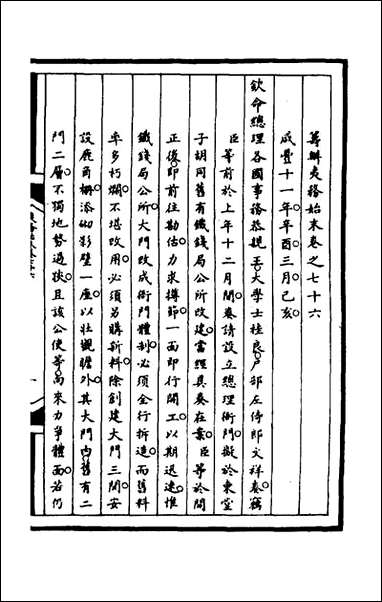 籌辦夷務始末卷之七十六
咸豐十一年辛酉三月己亥
欽命總理各國事務恭親王大學士桂良戶部左侍郎文祥奏竊
臣等前於上年十二月間奏請設立總理衙門擬於東堂
子胡同舊有鐵錢局公所改建當經具奏在案臣等於開
正後即前往勘估力求撙節一面即行開工以期迅速惟
鐵錢局公所大門改成衙門體制必須全行拆造而舊料
率多朽爛不堪改用必須另購新料除創建大門三間安
設鹿角柵添砌影壁一座以壯觀瞻外其大門內舊有二
門二層不獨地勢過狹且該公使等尚來力爭體面若仍